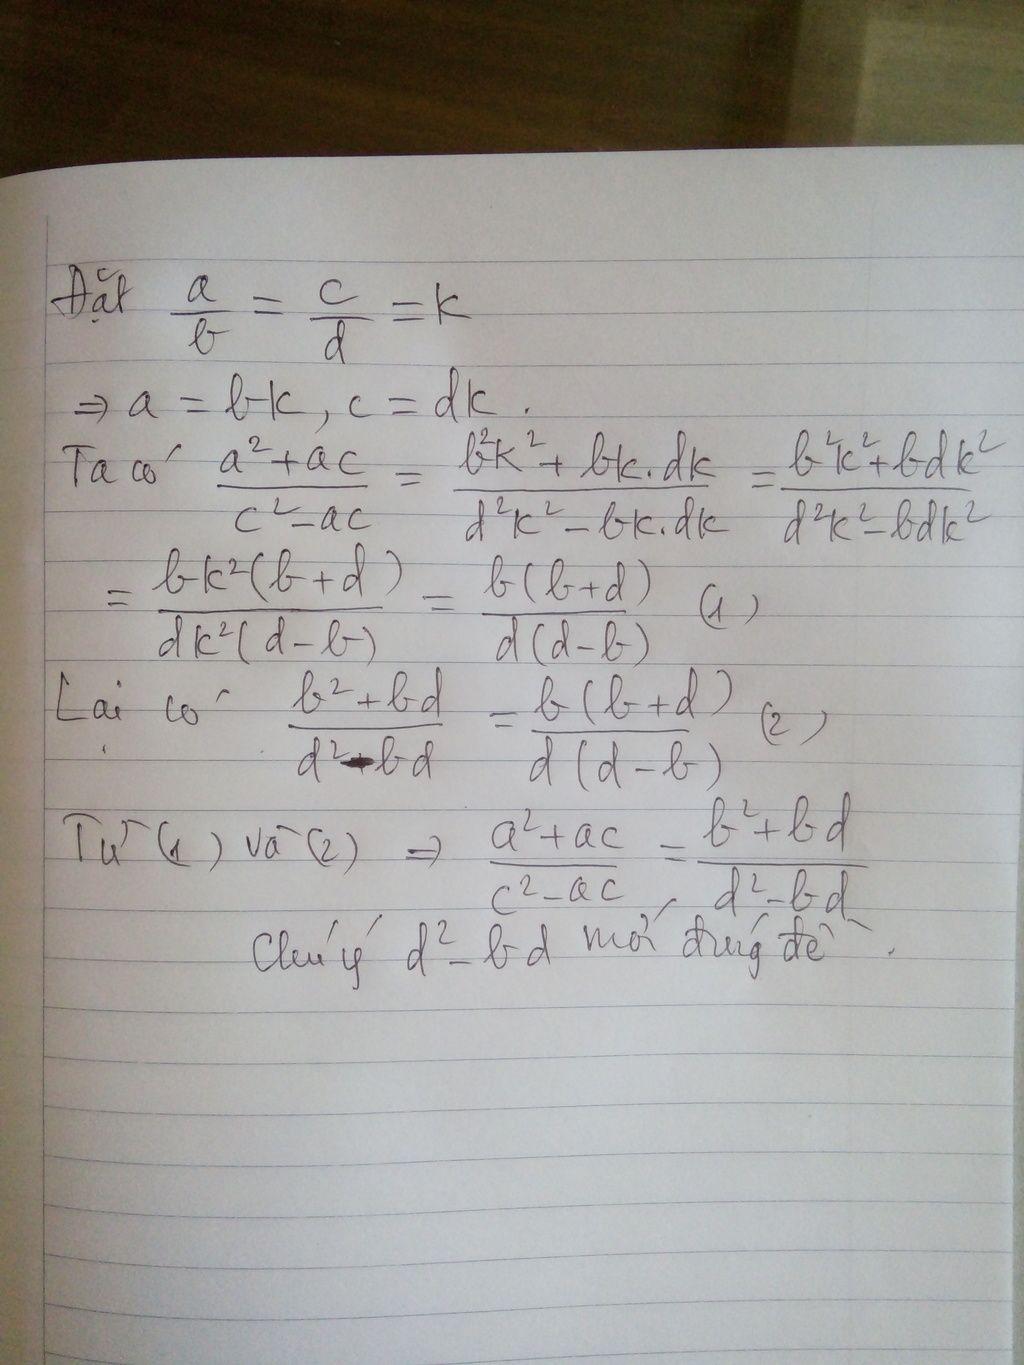 Đặt a/b = c/d = k
⇒ a = bk, c = dk.
Ta có (a² + ac)/(c² - ac) = (b²k² + bk.dk)/(d²k² - bk.dk) = (b²k² + bdk²)/(d²k² - bdk²)
= bk²(b+d)/dk²(d-b) = b(b+d)/d(d-b) (1)
Lại có (b² + bd)/(d² - bd) = b(b+d)/d(d-b) (2)
Từ (1) và (2) ⇒ (a² + ac)/(c² - ac) = (b² + bd)/(d² - bd)
Chú ý d² - bd mới đúng đề.